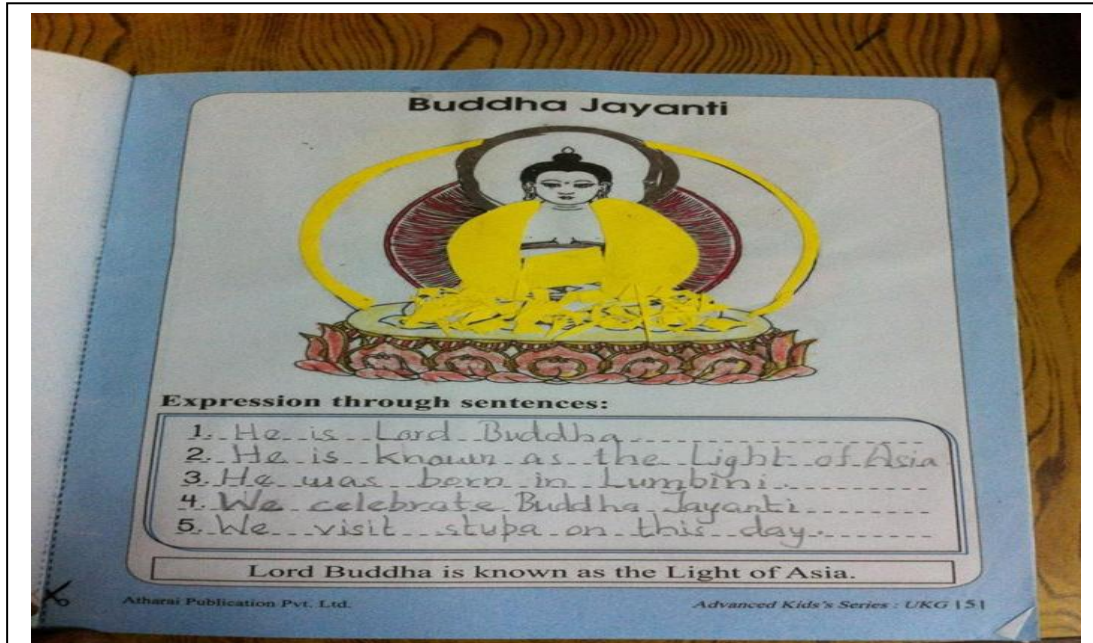 Buddha Jayanti
Expression through sentences:
1. He is Lord Buddha
2. He is known as the Light of Asia
3. He was born in Lumbini.
4. We celebrate Buddha Jayanti
5. We visit stupa on this day.
Lord Buddha is known as the Light of Asia.
Atharai Publication Pvt. Ltd. Advanced Kids's Series : UKG |5|